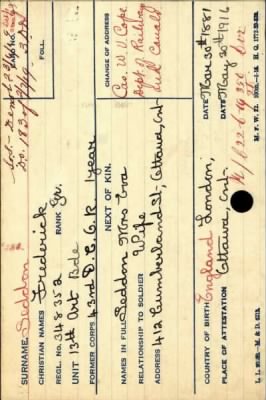 SURNAME Seddon
CHRISTIAN NAMES Frederick
REGL. No. 348352 RANK Gr.
UNIT 13th Art Bde
FORMER CORPS 43rd D.C.O.R. 1 year
NEXT OF KIN.
NAMES IN FULL Seddon Mrs Eva
RELATIONSHIP TO SOLDIER Wife
ADDRESS 412 Cumberland St, Ottawa, Ont
COUNTRY OF BIRTH England London, DATE May 30th 1881
PLACE OF ATTESTATION Ottawa, Ont. DATE May 20th 1916
FOLL.
CHANGE OF ADDRESS
Dept of Railways
and Canals
L. L. M. & D.
M. F. W.